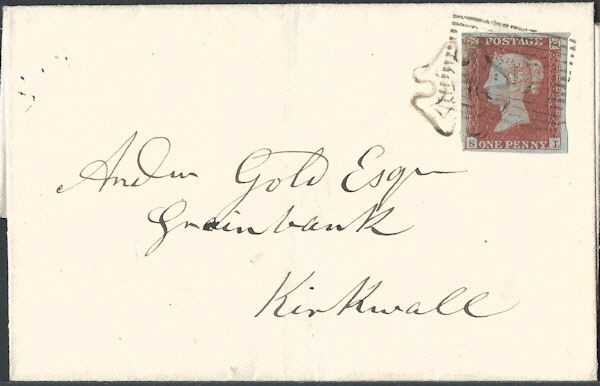 POSTAGE
S ONE PENNY I
Andw Gold Esqr
Grainbank
Kirkwall